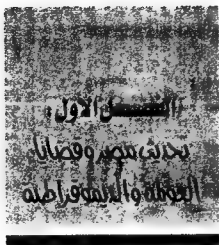 الفصل الأول:
تحديث مصر وقضايا
العولمة والديموقراطية